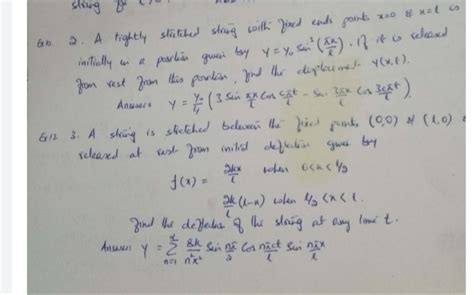 string
2. A tightly stretched string with fixed ends points x=0 & x=l is
initially in a position given by y = y₀ sin³(πx/l). If it is released
from rest from this position, find the displacement y(x,t).
Answer y = y₀/4 (3 sin πx/l cos cπt/l − sin 3πx/l cos 3cπt/l)
3. A string is stretched between the fixed points (0,0) & (l,0)
released at rest from initial deflection given by
f(x) = 2kx/l when 0<x<l/2
2k/l (l-x) when l/2 <x<l.
find the deflection of the string at any time t.
Answer Y = ∑ n=1 ∞ 8k/n²π² sin nπ/2 cos nπct/l sin nπx/l